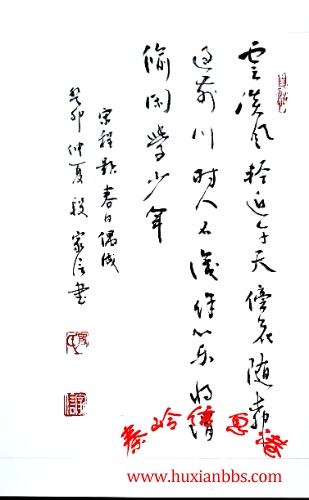 雲淡风轻近午天傍花随柳
过前川时人不識余心乐将谓
偷闲學少年
宋程颢春日偶成
癸卯仲夏段家信書
秦岭
www.huxianbbs.com